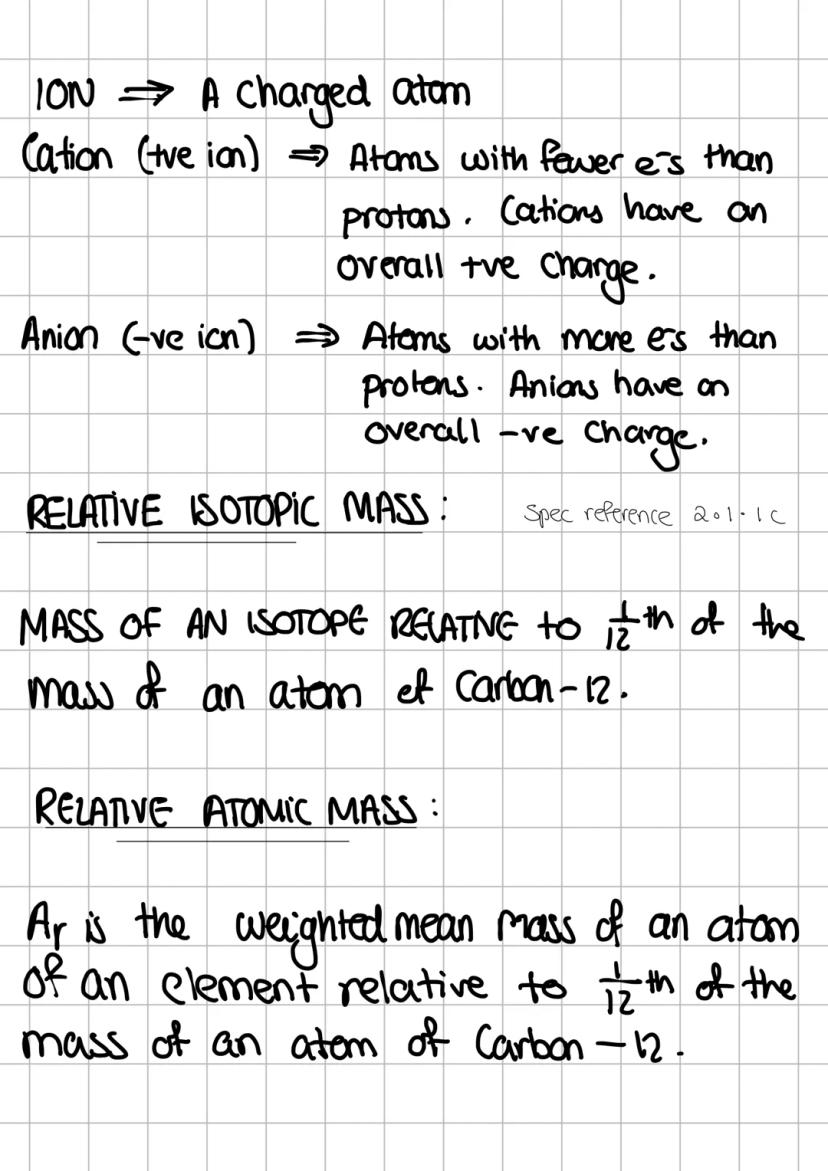 ION ⇒ A charged atom
Cation (+ve ion) ⇒ Atoms with fewer e⁻s than
protons. Cations have an
overall +ve charge.
Anion (-ve ion) ⇒ Atoms with more e⁻s than
protons. Anions have an
overall -ve charge.
RELATIVE ISOTOPIC MASS: Spec reference 2.1.1c
MASS OF AN ISOTOPE RELATIVE to 1/12 th of the
mass of an atom of Carbon-12.
RELATIVE ATOMIC MASS:
Ar is the weighted mean mass of an atom
of an element relative to 1/12 th of the
mass of an atom of Carbon-12.